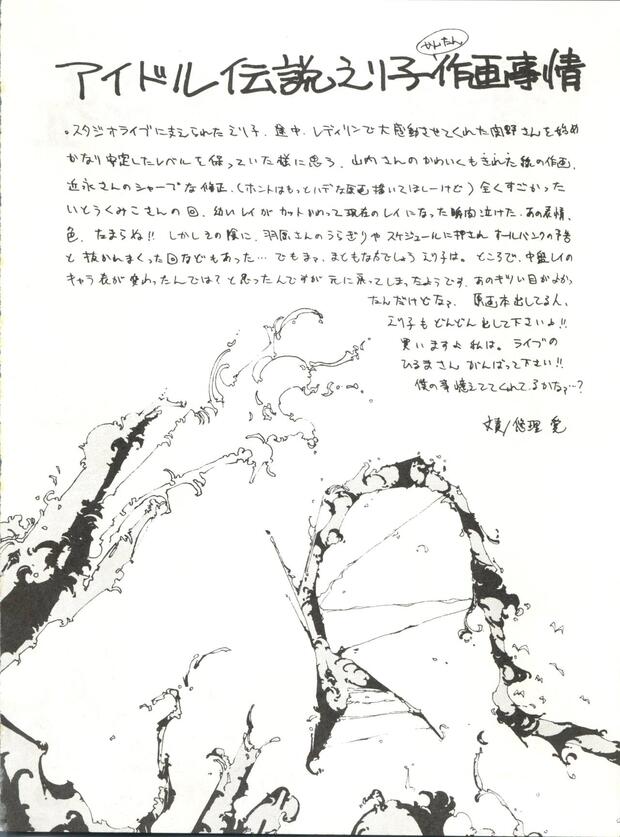 アイドル伝説えり子 かんたん 作画事情
。スタジオライブに支えられたえり子、途中、レディリンで大感動させてくれた関野さんを始め
かなり安定したレベルを保っていた様に思う、山内さんのかわいくもきれいな絵の作画、
近永さんのシャープな修正、(ホントはもっとハデな原画描いてほしーけど)全くすごかった
いとうくみこさんの回、幼いレイがカットかわって現在のレイになった瞬間泣けた、あの表情、
色、たまらね!! しかしその陰に、羽原さんのうらぎりやスケジュールに押されオールバンクの予告
と抜かれまくった回などもあった…でもまァ、まともな方でしょうえり子は。ところで、中盤レイの
キャラ表が変わったんでは?と思ったんですが元に戻ってしまったようです、あのキツい目がよかっ
たんだけどなァ、 原画本出してる人、
えり子もどんどん出して下さいよ!!
買いますよ私は。ライブの
ひるまさんがんばって下さい!!
僕の事憶えててくれてるかなァ…?
文責/悠理 愛